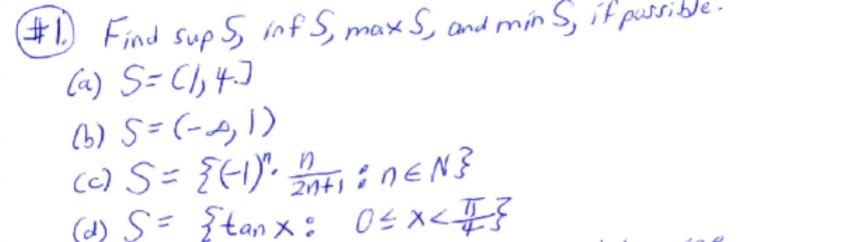 #1. Find sup S, inf S, max S, and min S, if possible.
(a) S = (1, 4]
(b) S = (-∞, 1)
(c) S = {(-1)ⁿ · n/(2n+1) : n ∈ N}
(d) S = {tan x : 0 ≤ x < π/4}